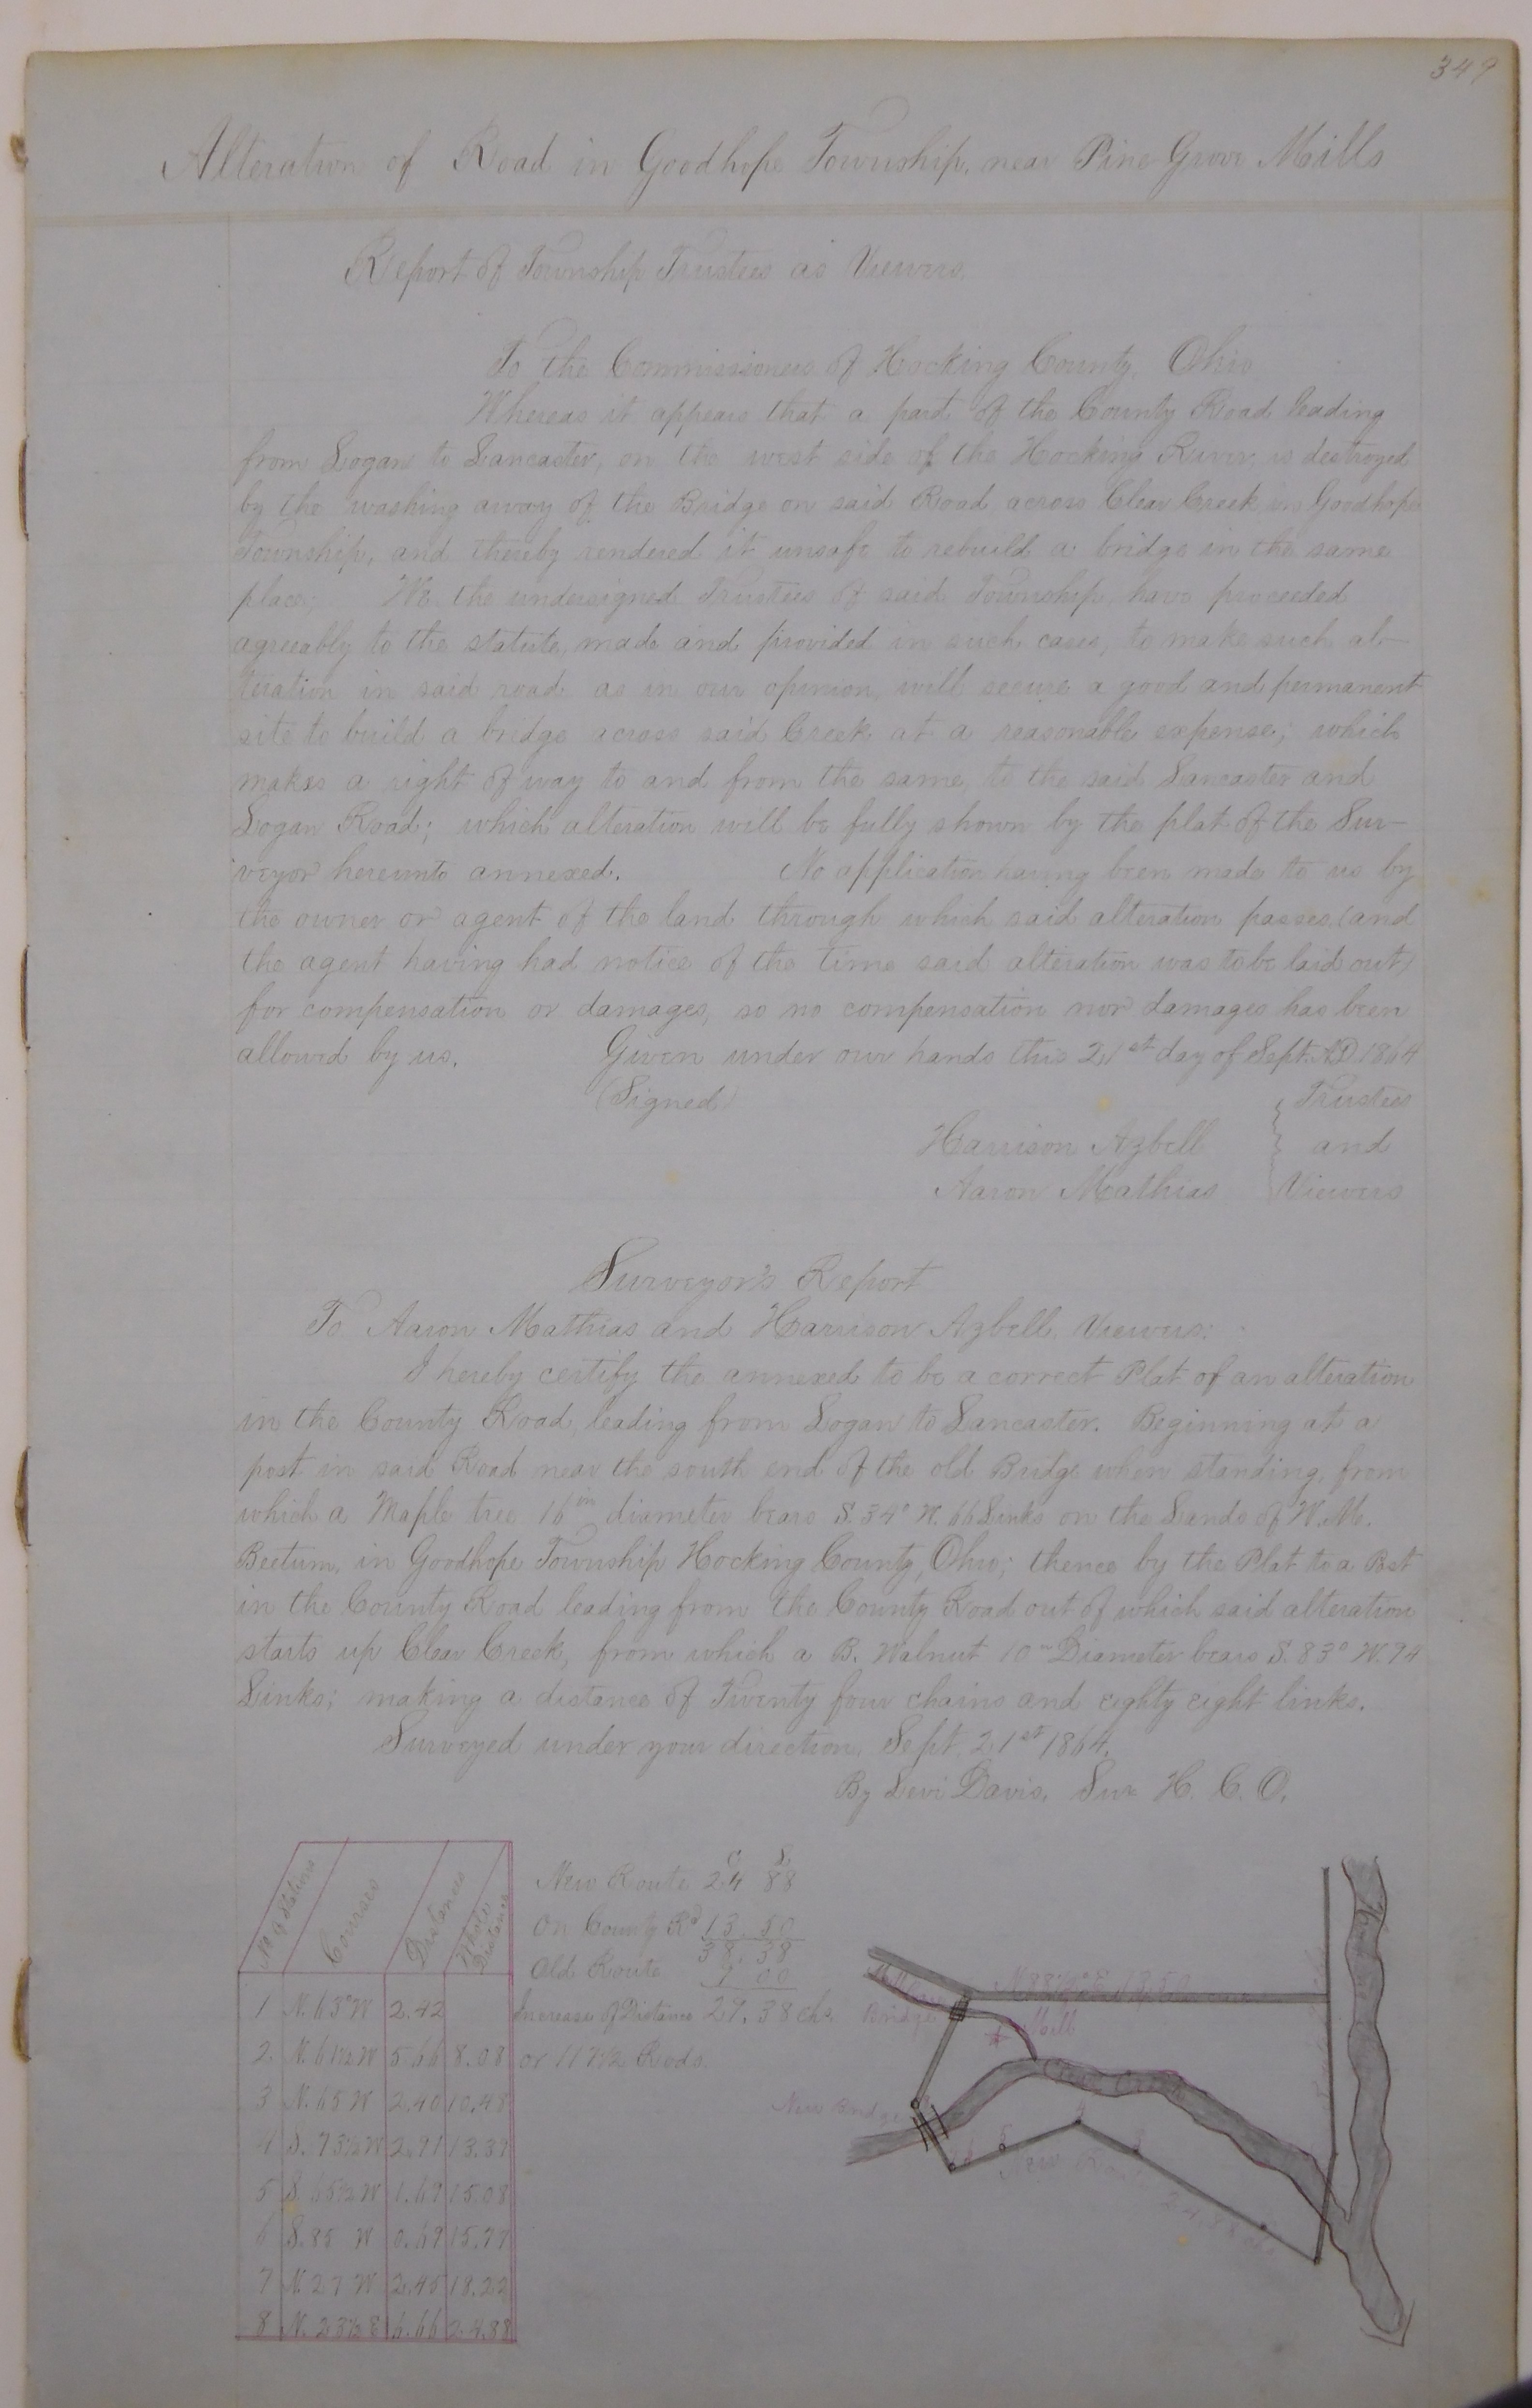 349
Alteration of Road in Goodhope Township, near Pine Grove Mills
Report of Township Trustees as Viewers.
To the Commissioners of Hocking County, Ohio
Whereas it appears that a part of the County Road leading
from Logan to Lancaster, on the west side of the Hocking River, is destroyed
by the washing away of the Bridge on said Road across Clear Creek in Goodhope
Township, and thereby rendered it unsafe to rebuild a bridge in the same
place; We the undersigned Trustees of said Township have proceeded
agreeably to the statute, made and provided in such cases, to make such al-
teration in said road as in our opinion, will secure a good and permanent
site to build a bridge across said Creek at a reasonable expense; which
makes a right of way to and from the same, to the said Lancaster and
Logan Road; which alteration will be fully shown by the plat of the Sur-
veyor hereunto annexed. No application having been made to us by
the owner or agent of the land through which said alteration passes, (and
the agent having had notice of the time said alteration was to be laid out)
for compensation or damages, so no compensation nor damages has been
allowed by us. Given under our hands this 21st day of Sept. A.D. 1864
(Signed) Trustees
Harrison Azbell and
Aaron Mathias Viewers
Surveyor's Report
To Aaron Mathias and Harrison Azbell Viewers:
I hereby certify the annexed to be a correct Plat of an alteration
in the County Road, leading from Logan to Lancaster. Beginning at a
post in said Road near the south end of the old Bridge when standing, from
which a Maple tree 16 in diameter bears S. 34° W. 66 Links on the Lands of W. M.
Beetum, in Goodhope Township Hocking County, Ohio; thence by the Plat to a Post
in the County Road leading from the County Road out of which said alteration
starts up Clear Creek, from which a B. Walnut 10 in Diameter bears S. 83° W. 74
Links; making a distance of Twenty four chains and eighty eight links.
Surveyed under your direction, Sept. 21st 1864.
By Levi Davis, Sur. H. C. O.
No of Stations Courses Distances Whole Distance
1 N. 63° W 2.42
2 N. 61½ W 5.66 8.08
3 N. 65 W 2.40 10.48
4 S. 73½ W 2.91 13.39
5 S. 65½ W 1.69 15.08
6 S. 85 W 0.69 15.77
7 N 27 W 2.45 18.22
8 N. 23½ E 6.66 24.88
C. L.
New Route 24 88
On County Rd 13. 50
38. 38
Old Route 9 00
Increase of Distance 29. 38 chs.
or 117½ Rods.
N. 88½° E. 13.50
Bridge
Mill
New Bridge
New Route 24.88 chs